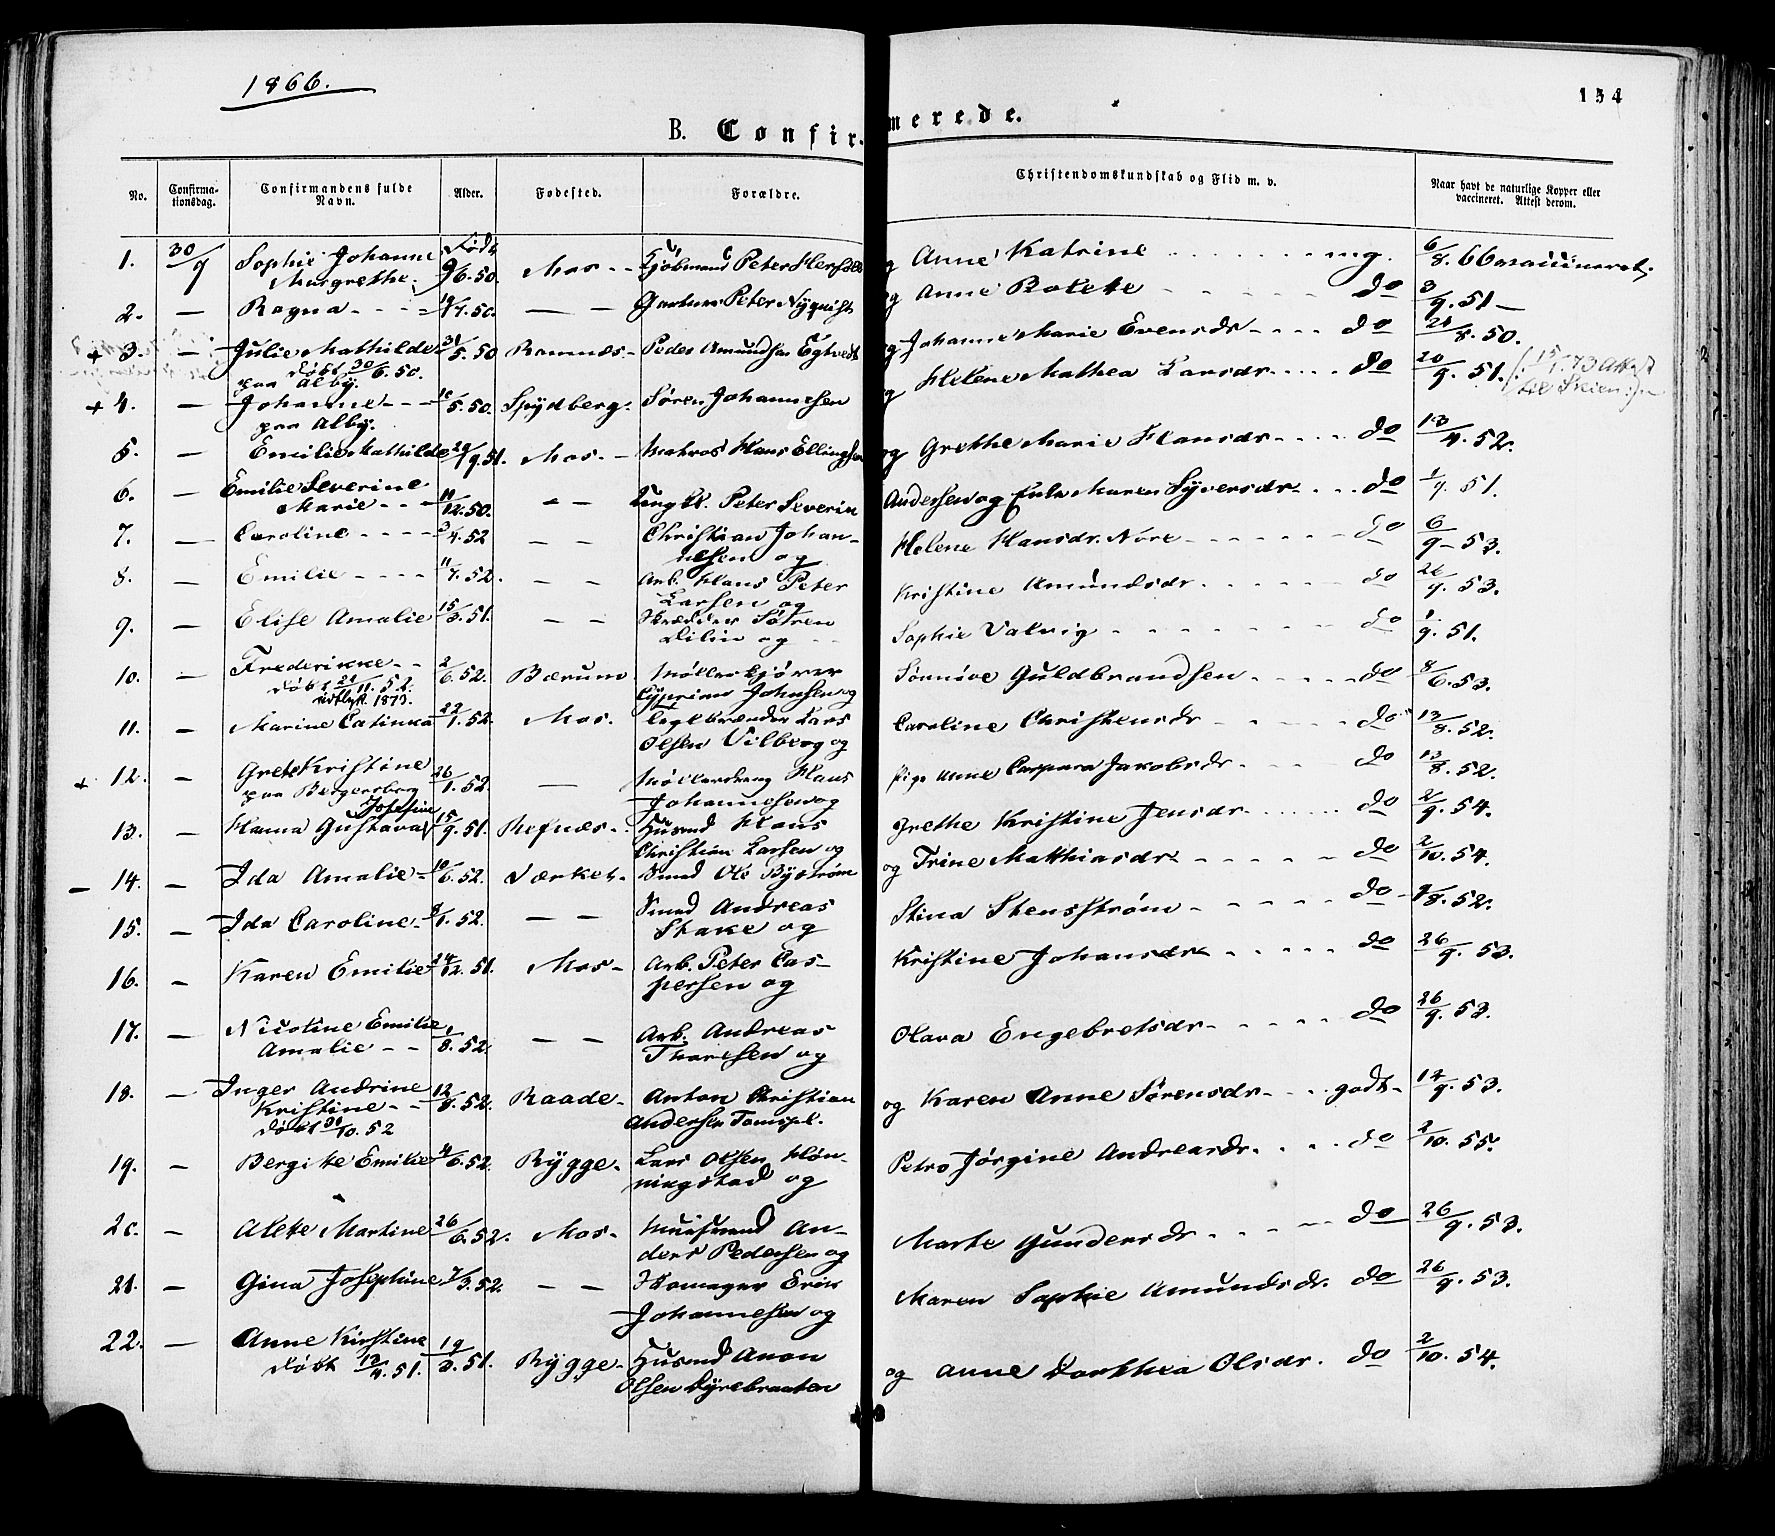 1866.
134
B. Confir-
merede.
No. Confirma-tionsdag. Confirmandens fulde Navn. Alder. Fødested. Forældre. Christendomskundskab og Flid m. v. Naar havt de naturlige Kopper eller vaccineret. Attest derom.
1. 30/9 Sophie Johanne Født 9/6.50. Mos - - Kjøbmand Peter og Anne Katrine mg. 6/8.66
Margrethe.
2. — Ragna - - - - .50. — — Peter Nyquist og Anne 3/9.51 —
+ 3. — Julie Mathilde 31/5.50 Ramnæs - Peder Amundsen Egtvedt og Johanne Marie Evensdr - - - - do 21/8.50.
døbt 30/6.50.
paa Alby.
+ 4. — Johanne - - - 5.50. Spydberg. Søren Johannesen og Helene Mathea Larsdr - - - - do 20/9.51.
paa Alby.
5. — Emilie Mathilde 9.51. Mos. - Matros Hans Ellingsen og Grethe Marie Hansdr - - - - do 13/4.52.
6. — Emilie Severine 11/12.50. - - Peter Severin Andersen og Maren Syversdr - - - do 1/9.51.
Marie - - -
7. — Caroline - - - - 3/4.52 - - Christian Johan- Helene Hansdr. Nore - - - - do 6/9 - 53.
nesen og
8. — Emilie - - - - 11/7.52. - - Arb. Hans Peter Kristine Amundsdr - - - - do 26/9.53.
Larsen og
9. — Elise Amalie 15/3.51. - - Skrædder Søren Sophie Valvig - - - - do 1/9.51.
og
10. — Frederikke - - 2/6.52. Bærum Møllerkjører Guldbrandsen - - - - do 8/6.53.
døbt 21/11.52.
1873.
Johnsen og
11. — Marine Catinka 22/1.52. Mos. Teglbrænder Lars Caroline Christensdr - - - - do 13/8.52.
Olsen Vilberg og
+ 12. — Grete Kristine 26/1.52. — Møllerdreng Hans Pige Anne Caspara Jakobsdr - do 13/8.52.
paa Bergersborg
Johannesen og
Josefine
13. — Hanna Gustava 15/9.51. Refnæs - Husmd Hans Grethe Kristine Jensdr - - - - do 2/9.54.
Christian Larsen og
- 14. — Ida Amalie - 10/6.52. Værket - Smed Ole Byström og Trine Mathiasdr - - - - do 2/10.54.
15. — Ida Caroline - 8/1.52. — — Smed Andreas Stina Stensstrøm - - - - do 8.52.
Stake og
16. — Karen Emilie 24/12.51. Mos - Arb. Peter Cas- Kristine Johansdr - - - - do 26/9.53.
persen og
17. — Nicoline Emilie 1/8.52. — — Arb. Andreas Olava Engebretsdr - - - - do 26/9.53.
Amalie - -
Thoresen og
18. — Inger Andrine 12/8.52. Raade - Anton Christian og Karen Anne Sørensdr - - - godt - 14/9.53.
Kristine - -
døbt 31/10.52
Andersen Tomspl.
19. — Bergitte Emilie 4/6.52. Rygge. Lars Olsen Høn- Petro Jørgine Andreasdr. - - - do 2/10.55.
ningstad og
20. — Alette Martine 26/6.52. Mos - Muursvend An- Marte Gundersdr - - - - do 26/9.53.
ders Pedersen og
21. — Gina Josephine 7/3.52. - - Skomager Erik Maren Sophie Amundsdr. do 26/9.53.
Johannesen og
22. — Anne Kirstine 19/3.51. Rygge - Husmd Anon og Anne Dorthea Olsdr. do 2/10.54.
døbt 12/4.51.
Olsen Dyrebraaten